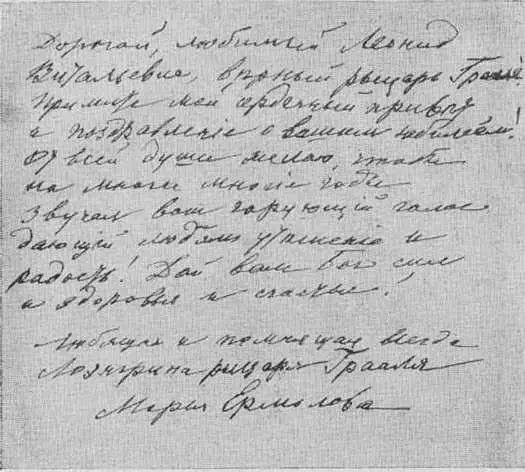 Дорогой, любимый Леонид
Витальевич, вѣрный рыцарь Грааля!
Примите мой сердечный привѣт
и поздравленіе с вашим юбилеем!
От всей души желаю, чтобы
на многіе многіе годы
звучал ваш чарующій голос
дающій людям утѣшеніе и
радость! Дай вам Бог сил
и здоровья и счастье!
Любящая и помнящая всегда
Лоэнгрина рыцаря Грааля
Мария Ермолова